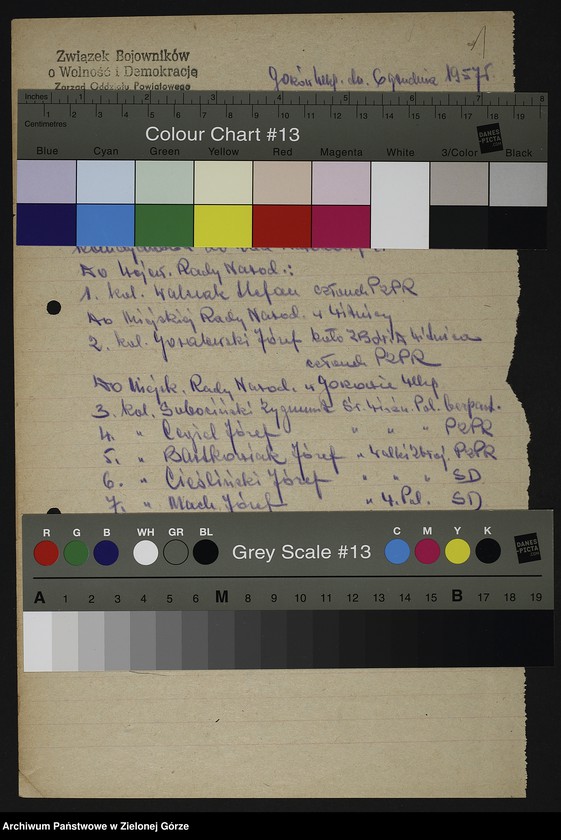 Związek Bojowników
o Wolność i Demokrację
Zarząd Oddziału Powiatowego
dn. 6 grudnia 1957 r.
inches 1 2 3 4 5 6 7 8
Centimetres 1 2 3 4 5 6 7 8 9 10 11 12 13 14 15 16 17 18 19
Colour Chart #13
DANES
-PICTA
.COM
Blue Cyan Green Yellow Red Magenta White 3/Color Black
Do Wojew. Rady Narod.:
1. kol. Walczak Stefan członek PZPR
Do Miejskiej Rady Narod. w Witnicy
2. kol. Józef koło ZBoWiD Witnica
członek PZPR
Do Miejsk. Rady Narod. w Gorzowie Wlkp.
3. kol. Suboczński Zygmunt Pol. bezpart.
4. " Cegieł Józef " " " PZPR
5. " Bartkowiak Józef " PZPR
6. " Cieśliński Józef " " " SD
7. " Mach Józef " Pol. SD
R G B WH GR BL Grey Scale #13 C M Y K
DANES
-PICTA
.COM
A 1 2 3 4 5 6 M 8 9 10 11 12 13 14 15 B 17 18 19
Archiwum Państwowe w Zielonej Górze